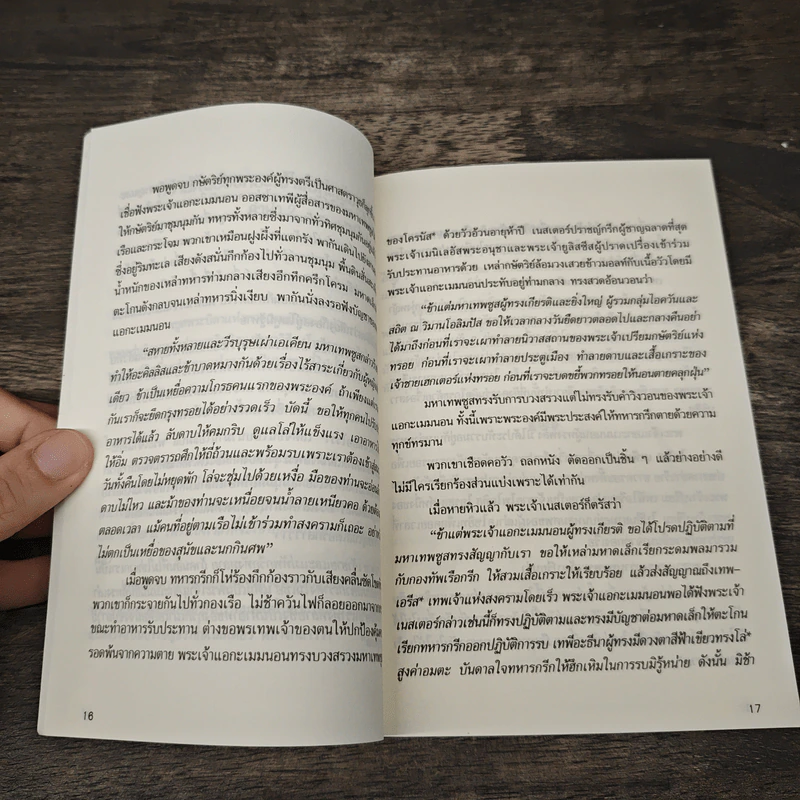 พอพูดจบ กษัตริย์ทุกพระองค์ผู้ทรงตรีเป็นศาสตราวุธก็ลุกขึ้น
เชื่อฟังพระเจ้าแอกะเมมนอน ออสซาเทพีผู้สื่อสารของมหาเทพ
ให้กษัตริย์มาชุมนุมกัน ทหารทั้งหลายซึ่งมาจากทั่วทิศชุมนุมกัน
เรือและกระโจม พวกเขาเหมือนฝูงผึ้งที่แตกรัง พากันเดินไป
ซึ่งอยู่ริมทะเล เสียงดังสนั่นกึกก้องไปทั่วลานชุมนุม พื้นดินสั่น
น้ำหนักของเหล่าทหารท่ามกลางเสียงอึกทึกครึกโครม มหาด
ตะโกนดังกลบจนเหล่าทหารนิ่งเงียบ พากันนั่งลงรอฟังบัญชา
แอกะเมมนอน
"สหายทั้งหลายและวีรบุรุษเผ่าเอเคียน มหาเทพซูสกล่าว
ทำให้อะคิลลิสและข้าบาดหมางกันด้วยเรื่องไร้สาระเกี่ยวกับผู้หญิง
เดียว ข้าเป็นเหยื่อความโกรธคนแรกของพระองค์ ถ้าเพียงแต่
กันเราก็จะยึดกรุงทรอยได้อย่างรวดเร็ว บัดนี้ ขอให้ทุกคนไป
อาหารได้แล้ว ลับดาบให้คมกริบ ดูแลโล่ให้แข็งแรง เอาอาหาร
ให้อิ่ม ตรวจตรารถศึกให้ถี่ถ้วนและพร้อมรบเพราะเราต้องเข้าสู่
วันทั้งคืนโดยไม่หยุดพัก โล่จะชุ่มไปด้วยเหงื่อ มือของท่านจะอ่อน
ดาบไม่ไหว และม้าของท่านจะเหนื่อยจนน้ำลายเหนียวคอ ด้วย
ตลอดเวลา แม้คนที่อยู่ตามเรือไม่เข้าร่วมทำสงครามก็เถอะ อย่า
ไม่ตกเป็นเหยื่อของสุนัขและนกกินศพ"
เมื่อพูดจบ ทหารกรีกก็โห่ร้องกึกก้องราวกับเสียงคลื่นซัดโขด
พวกเขาก็กระจายกันไปทั่วกองเรือ ไม่ช้าควันไฟก็ลอยออกมาจาก
ขณะทำอาหารรับประทาน ต่างขอพรเทพเจ้าของตนให้ปกป้องคุ้ม
รอดพ้นจากความตาย พระเจ้าแอกะเมมนอนทรงบวงสรวงมหาเทพ
16
ของโครนัส* ด้วยวัวอ้วนอายุห้าปี เนสเตอร์ปราชญ์กรีกผู้ชาญฉลาดที่สุด
พระเจ้าเมนิเลอัสพระอนุชาและพระเจ้ายูลิสซีสผู้ปราดเปรื่องเข้าร่วม
รับประทานอาหารด้วย เหล่ากษัตริย์ล้อมวงเสวยข้าวมอลท์กับเนื้อวัวโดยมี
พระเจ้าแอกะเมมนอนประทับอยู่ท่ามกลาง ทรงสวดอ้อนวอนว่า
"ข้าแต่มหาเทพซูสผู้ทรงเกียรติและยิ่งใหญ่ ผู้รวมกลุ่มไอควันและ
สถิต ณ วิมานโอลิมปัส ขอให้เวลากลางวันยืดยาวตลอดไปและกลางคืนอย่า
ได้มาถึงก่อนที่เราจะเผาทำลายนิวาสสถานของพระเจ้าเปรียมกษัตริย์แห่ง
ทรอย ก่อนที่เราจะเผาทำลายประตูเมือง ทำลายดาบและเสื้อเกราะของ
เจ้าชายเฮกเตอร์แห่งทรอย ก่อนที่เราจะบดขยี้พวกทรอยให้นอนตายคลุกฝุ่น"
มหาเทพซูสทรงรับการบวงสรวงแต่ไม่ทรงรับคำวิงวอนของพระเจ้า
แอกะเมมนอน ทั้งนี้เพราะพระองค์มีพระประสงค์ให้ทหารกรีกตายด้วยความ
ทุกข์ทรมาน
พวกเขาเชือดคอวัว ถลกหนัง ตัดออกเป็นชิ้น ๆ แล้วย่างอย่างดี
ไม่มีใครเรียกร้องส่วนแบ่งเพราะได้เท่ากัน
เมื่อหายหิวแล้ว พระเจ้าเนสเตอร์ก็ตรัสว่า
"ข้าแต่พระเจ้าแอกะเมมนอนผู้ทรงเกียรติ ขอได้โปรดปฏิบัติตามที่
มหาเทพซูสทรงสัญญากับเรา ขอให้เหล่ามหาดเล็กเรียกระดมพลมารวม
กับกองทัพเรือกรีก ให้สวมเสื้อเกราะให้เรียบร้อย แล้วส่งสัญญาณถึงเทพ-
เอรีส* เทพเจ้าแห่งสงครามโดยเร็ว พระเจ้าแอกะเมมนอนพอได้ฟังพระเจ้า
เนสเตอร์กล่าวเช่นนี้ก็ทรงปฏิบัติตามและทรงมีบัญชาต่อมหาดเล็กให้ตะโกน
เรียกทหารกรีกออกปฏิบัติการรบ เทพีอะธีนาผู้ทรงมีดวงตาสีฟ้าเขียวทรงโล่*
สูงค่าอมตะ บันดาลใจทหารกรีกให้ฮึกเหิมในการรบมิรู้หน่าย ดังนั้น มิช้า
17